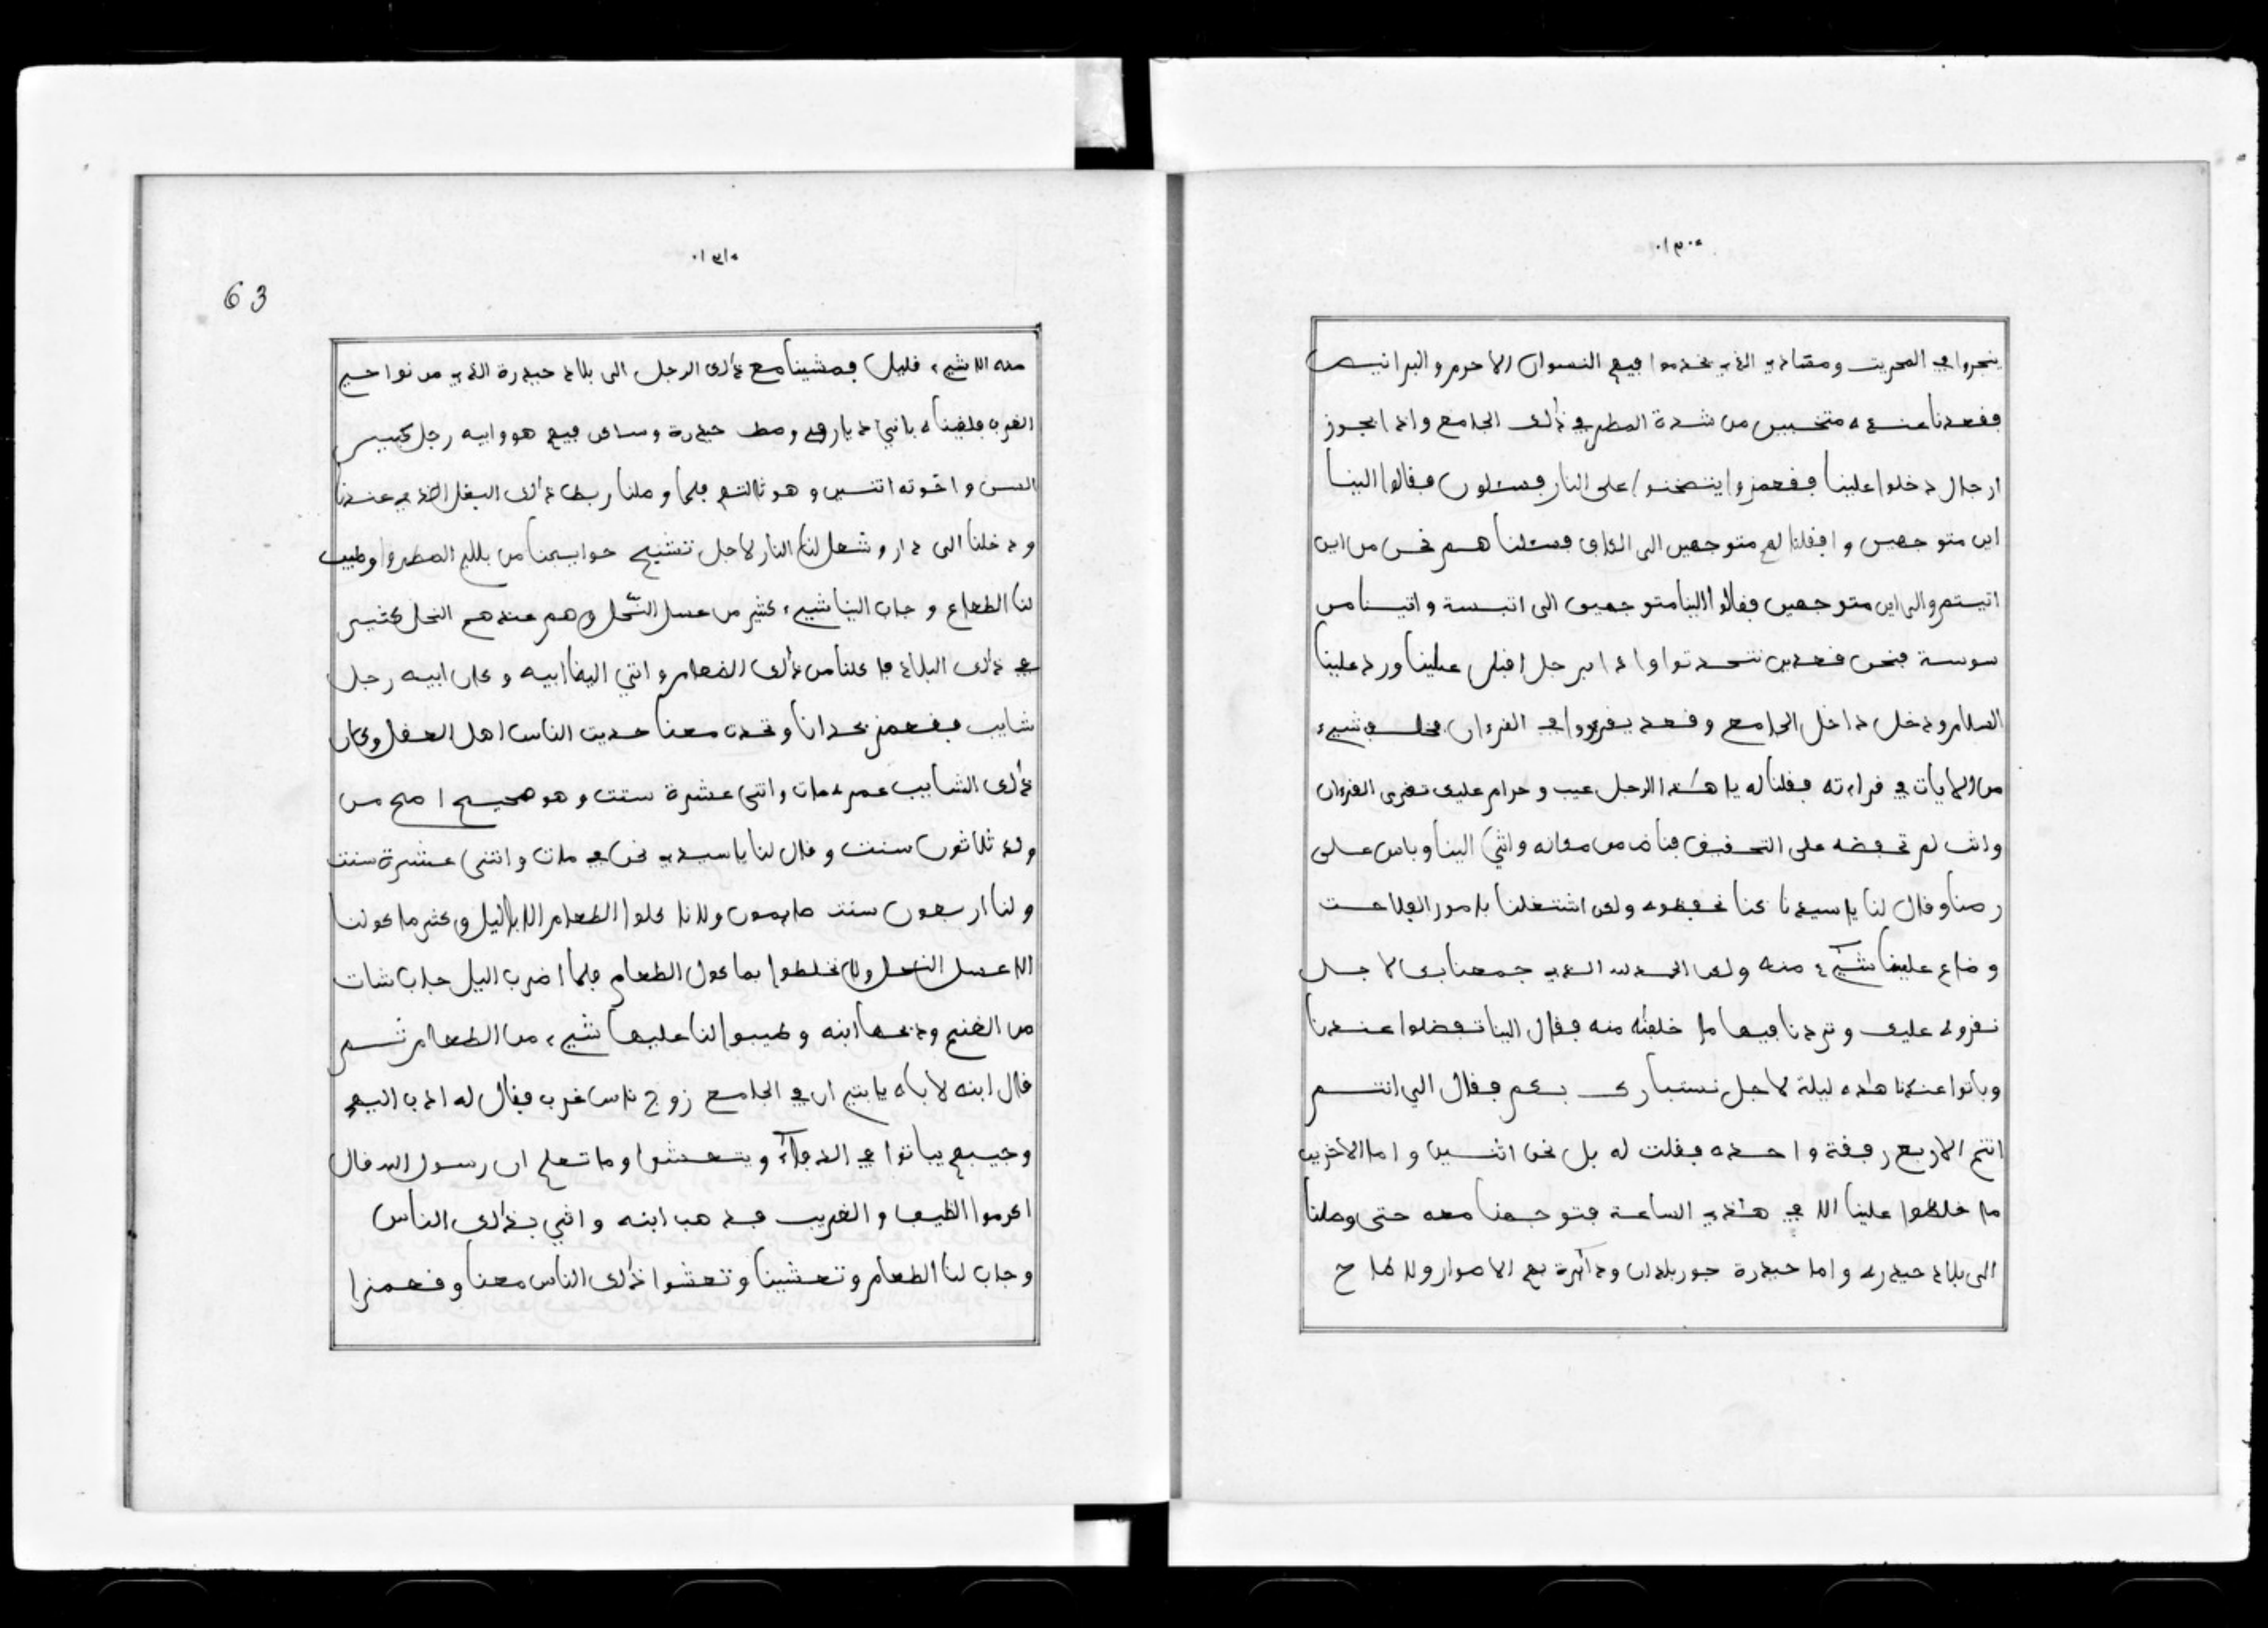 .١٣٠.
ينجروا في الحريت ومقادي الذي يخدموا فيهم النسوان الاحرم والبرانيس
فقعدنا عنده متخبيين من شدة المطر في ذٰلك الجامع واذا بجوز
ارجال دخلوا علينا فقعمزوا يتسخنوا على النار فسئلون فقالوا الينا
اين متوجهين وا فقلنا لهم متوجهين الى الكاف فسئلناهم نحن من اين
اتيتم والى اين متوجهين فقالوا الينا متوجهين الى اتبسة واتينا من
سوسة فنحن قعدين نتحدثوا واذا برجل اقبل علينا ورد علينا
السلام ودخل داخل الجامع وقعد يقرءوا في القرءان فخلف شيء
من الايات في قراءته فقلنا له يا هٰذا الرجل عيب وحرام عليك تقرى القرءان
وانت لم تحفضه على التحقيق فناض من مكانه واتىٰ الينا وباس على
رصنا وقال لنا يا سيدنا كنا نحفظوه ولكن اشتغلنا بامور الفلاحت
وضاع علينا شيء منه ولكن الحمد لله الذي جمعنا بك لاجل
نقروه عليك وتردنا فيها ما خلفته منه فقال الينا تفضلوا عندنا
وباتوا عندنا هٰذه ليلة لاجل نستبارك بكم فقال الي انتم
انتم الاربع رفقة واحده فقلت له بل نحن اثنين واما الاخرين
ما خلطوا علينا الا في هٰذي الساعة فتوجهنا معه حتى وصلنا
الى بلاد حيدره واما حيدرة جور بلدان ودايرة بهم الاصوار ولا طاح
.١٣١.
63
منه الا شيء قليل فمشينا مع ذٰلك الرجل الى بلاد حيدرة الذي من نواحي
الغرب فلقيناه باني ديار في وصط حيدرة وساكن فيهم هو وابيه رجل كبير
السن واخوته اثنين وهو ثالثهم فلما وصلنا ربط ذٰلك البغل الذي عندنا
ودخلنا الى دار وشعل لنا النار لاجل تشيح حوايجنا من بلل المطر وا وطيب
لنا الطعام وجاب الينا شيء كثير من عسل النّحل وهم عندهم النحل كثير
في ذٰلك البلاد فاكلنا من ذٰلك الضعام واتي الينا ابيه وكان ابيه رجل
شايب فقعمز بحدانا وتحدث معنا حديث الناس اهل العقل وكان
ذٰلك الشايب عمره مات واثنى عشرة سنت وهو صحيح اصح من
ولد ثلاثون سنت وقال لنا يا سيدي نحن في مات واثنى عشرة سنت
ولنا اربعون سنت صايمون ولا ناكلوا الطعام الا بالليل وكثير ماكولنا
الا عسل النحل ولا نخلطوا بماكول الطعام فلما اضرب اليل جاب شات
من الغنم وذبحها ابنه وطيبوا لنا عليها شيء من الطعام ثم
قال ابنه لاباه يا بتي ان في الجامع زوج ناس غرب فقال له اذهب اليهم
وجيبهم يباتوا في الدفاء ويتعشوا وما تعلم ان رسول الله قال
اكرموا الظيف والغريب فذهب ابنه واتي بذٰلك الناس
وجاب لنا الطعام وتعشينا وتعشوا ذٰلك الناس معنا وقعمزا